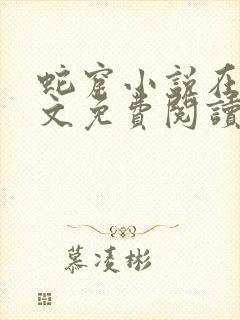 蛇窟小説在
文免費閱讀
慕凌彬